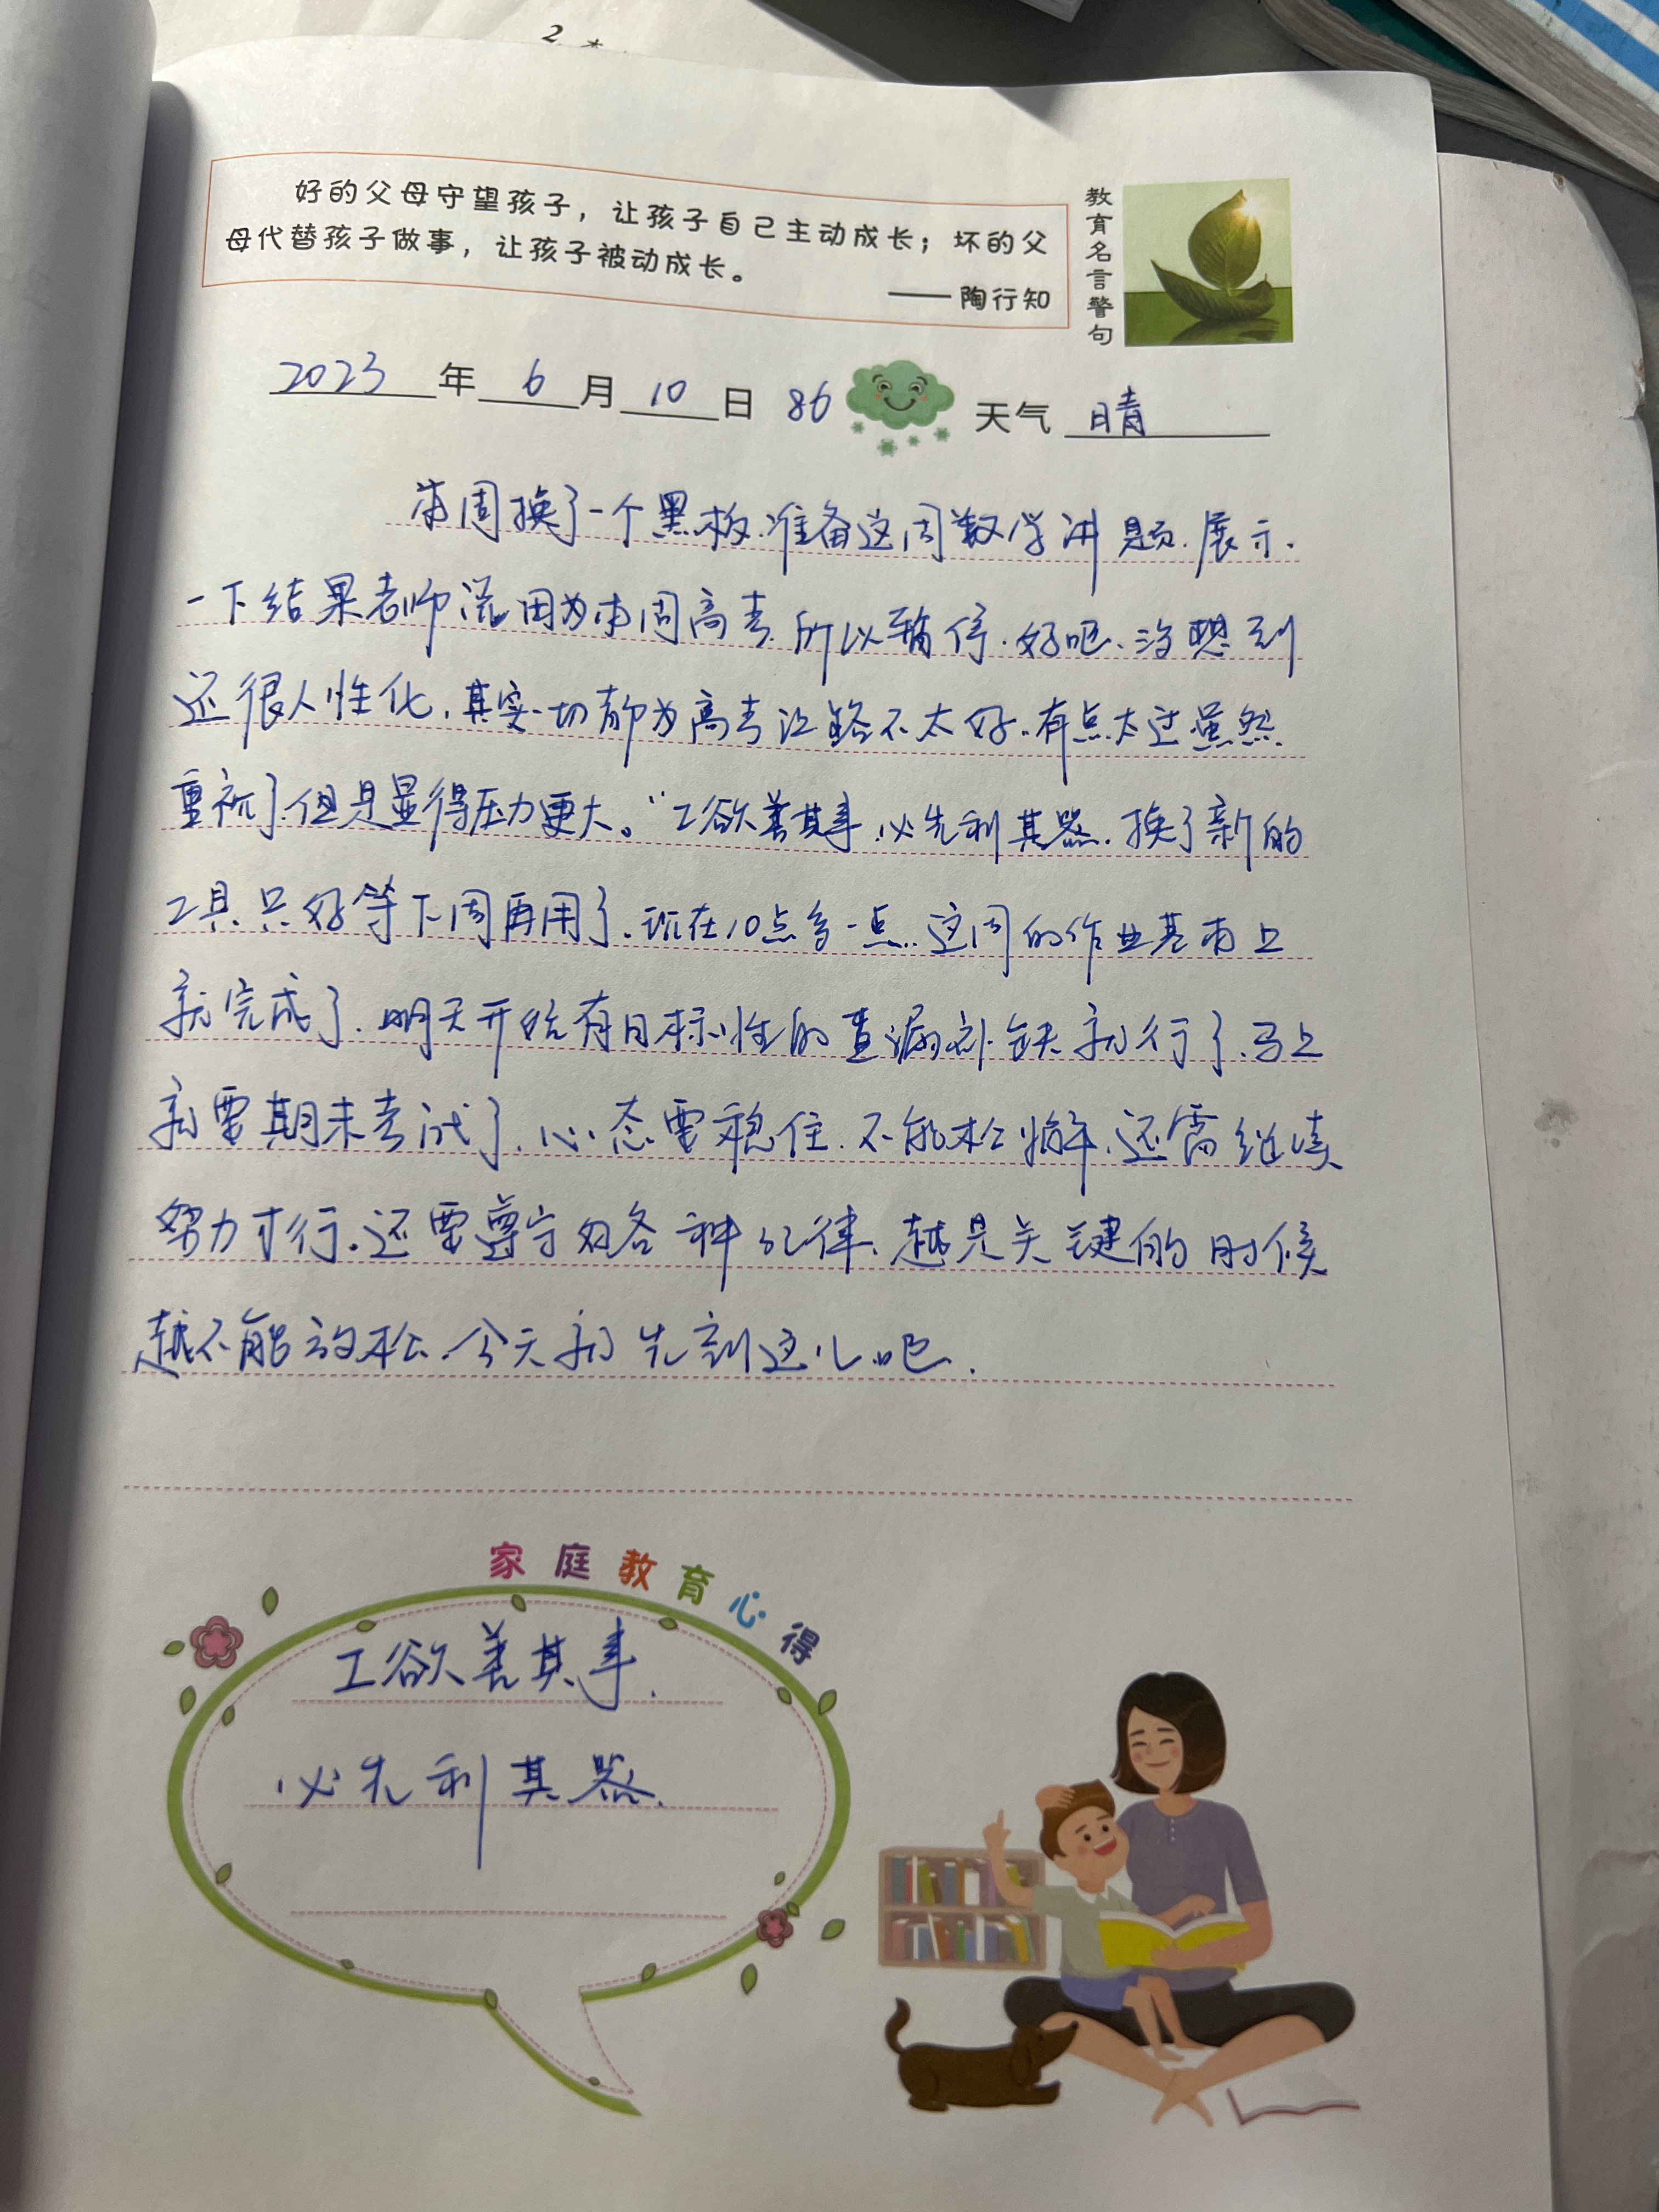 2 本
好的父母守望孩子，让孩子自己主动成长；坏的父
母代替孩子做事，让孩子被动成长。
——陶行知
教育名言警句
2023年6月10日 86 天气 晴
本周换了一个黑板.准备这周数学讲题.展示.
一下结果老师说因为本周高考.所以暂停.好吧、没想到
还很人性化,其实一切都为高考让路不太好.有点太过虽然
重视了.但是显得压力更大。“工欲善其事.必先利其器.换了新的
工具.只好等下周再用了.现在10点多一点..这周的作业基本上
就完成了.明天开始有目标性的查漏补缺就行了.马上
就要期末考试了.心态要稳住.不能松懈.还需继续
努力才行.还要遵守好各种纪律.越是关键的时候
越不能放松.今天就先到这儿吧.
家庭教育心得
工欲善其事.
必先利其器.